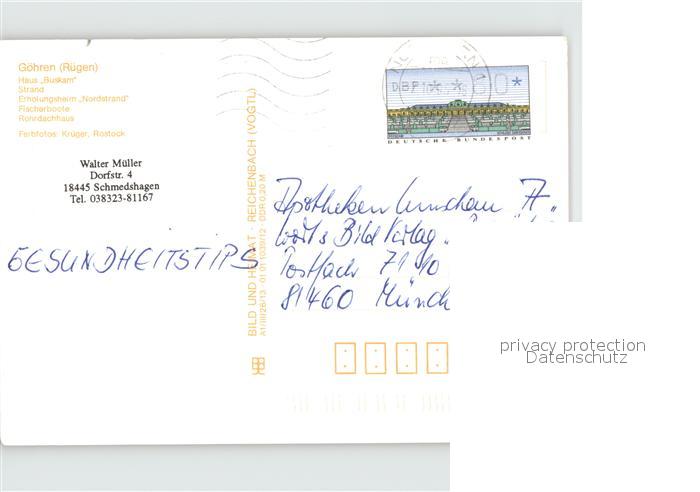 Göhren (Rügen)
Haus „Buskam"
Strand
Erholungsheim „Nordstrand"
Fischerboote
Rohrdachhaus
Farbfotos: Krüger, Rostock
Walter Müller
Dorfstr. 4
18445 Schmedshagen
Tel. 038323-81167
GESUNDHEITSTIPS
BILD UND HEIMAT · REICHENBACH (VOGTL)
DBP
DEUTSCHE BUNDESPOST
Apotheken Umschau A"
Wort & Bild Verlag
Postfach 71 10
81460 Münch
privacy protection
Datenschutz